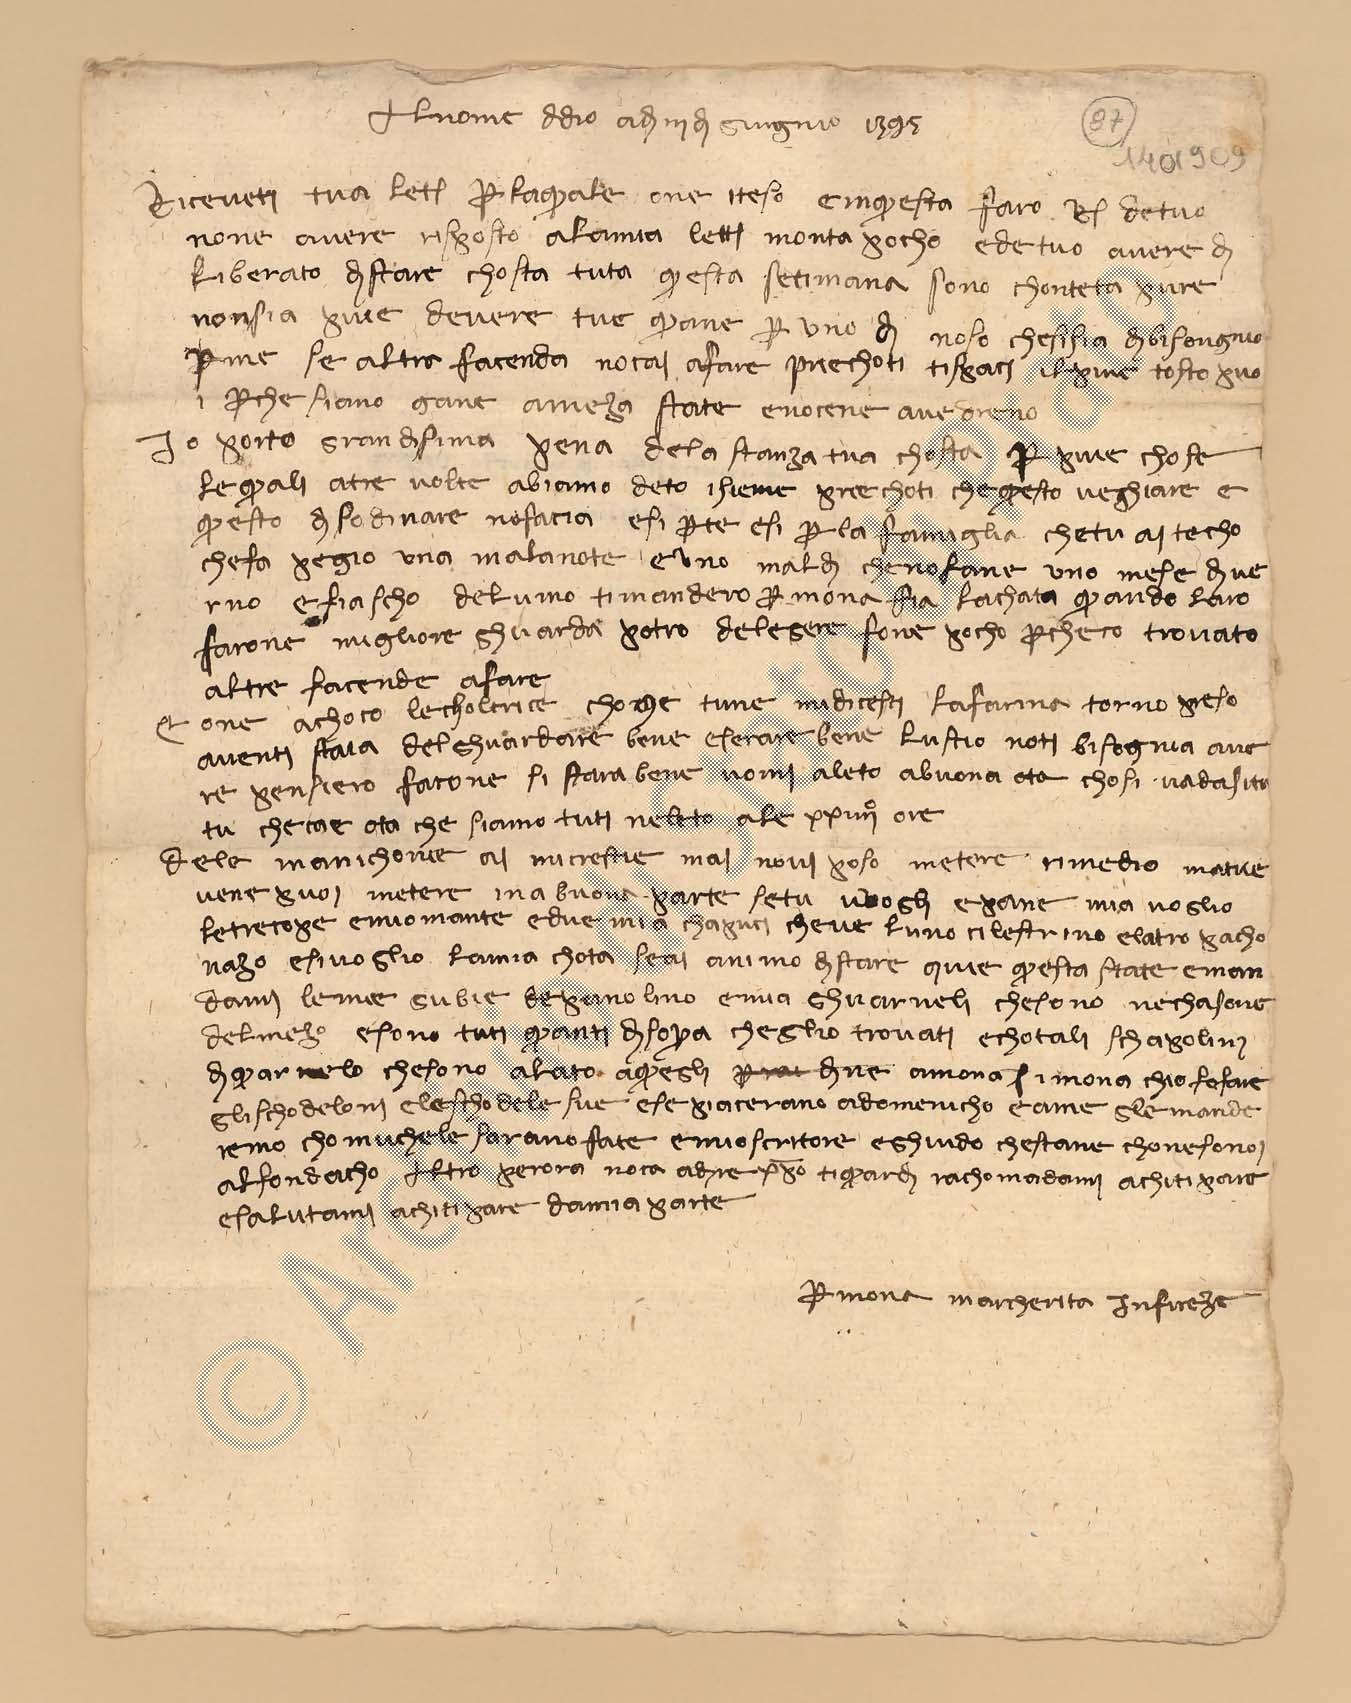 Al nome ddio adì iij di giugnio 1395
87
1401909
Riceveti tua lett p laquale one iteso e inquesta farò R detuo
none avere risposto alamia lett monta pocho edetuo avere di
liberato distare chostà tuta questa setimana sono chonteta pure
nonsia piue devere tue quane p uno di noso chesisia dibisongnio
pme se altro facenda nocai afare preghoti tispaci ilpiue tosto puo
i pche siamo gane ameza state enocene ave
Io porto grandisima pena dela stanza tua chostà p piue chose
lequali atre volte abiamo deto isieme preghoti chequesto veghiare e
questo disodinare nofacia esi pte esi pla famiglia chetu ai techo
chefa pegio una malanote e uno maldì chenofane uno mese dive
rno efiascho deluino timandero pmona fia lachata quando loro
farone migliore ghuardà potro delegere fone pocho pcheco trovato
altre facende afare
E one achoco lecholtrice chome tune midicesti lafarina torno peso
aventi staia delghuardare bene eserare bene luscio noti bisognia ave
re pensiero farone si stara bene vomi aleto abuona ota chosi vadasi
tu checae ota che siamo tuti neleto ale xxiiij ore
dele manichonie ai micrescie mai novi poso metere rimedio matue
vene puoi metere ina buona parte setu vuogli epane mia voglio
letrecope emiomante edue mia chapuci cheve luno cilestrino elatro pacho
nazo esivoglio lamia chota seai animo distare quie questa state eman
dami lemee giubie depanolino emia ghuarneli chesono nechasone
delmezo esono tuti quanti disopra cheglio trovati echotali schapolini
diquarnelo chesono alato aquegli due amona simona chio fofare
glischodeloni eleschodele sue ese piacerano adomenicho eame glemande
remo chomichele sarano fate emioscritore eghuido chestane chonesonoi
alfondacho Altro perora noca adire xpo tiquardi rachomadami achiti pare
esalutami achitipare damia parte
P mona marcherita Infireze